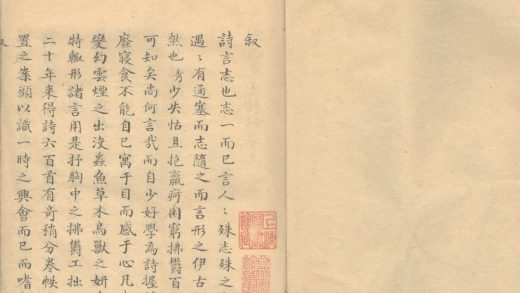 叙
詩言志也志一而已言人〻殊志殊之
遇〻有通塞而志隨之而言形之伊古
然也秀少失怙且抱羸疴困窮拂欝百
可知矣尚何言哉而自少好學為詩握
廢寝食不能自已寓于目而感于心凡
變幻雲煙之出没蟲魚草木鳥獸之妍
特輙形諸言用是抒胸中之拂欝工拙
二十年來得詩六百首有奇稍分卷帙
置之案頭以識一時之興會而已而嗜